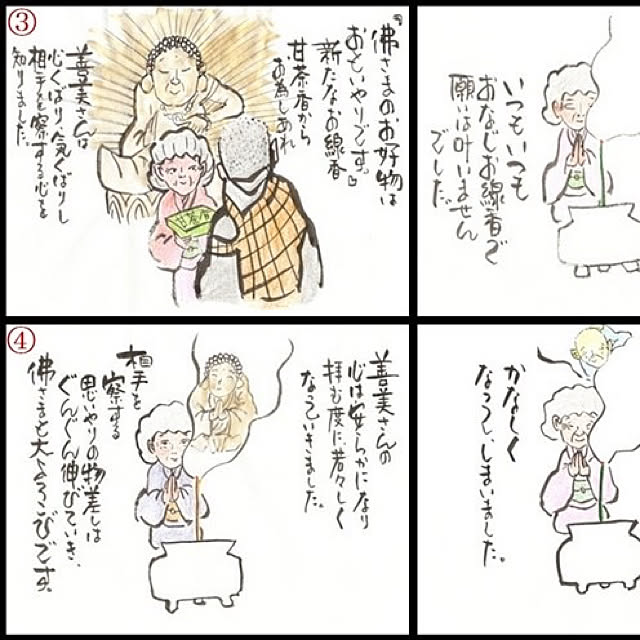 いつもいつも
おなじお線香で
願いは叶いません
でした。
かなしく
なってしまいました。
③
佛さまのお好物は
おもいやりです。
新たなお線香
甘茶香から
お為しあれ
甘茶香
善美さんは
心くばり、気くばりし
相手を察する心を
知りました。
④
善美さんの
心は安らかになり
拝む度に、若々しく
なっていきました。
相手を
察する
思いやりの物差しは
ぐんぐん伸びていき、
佛さまも大よろこびです。